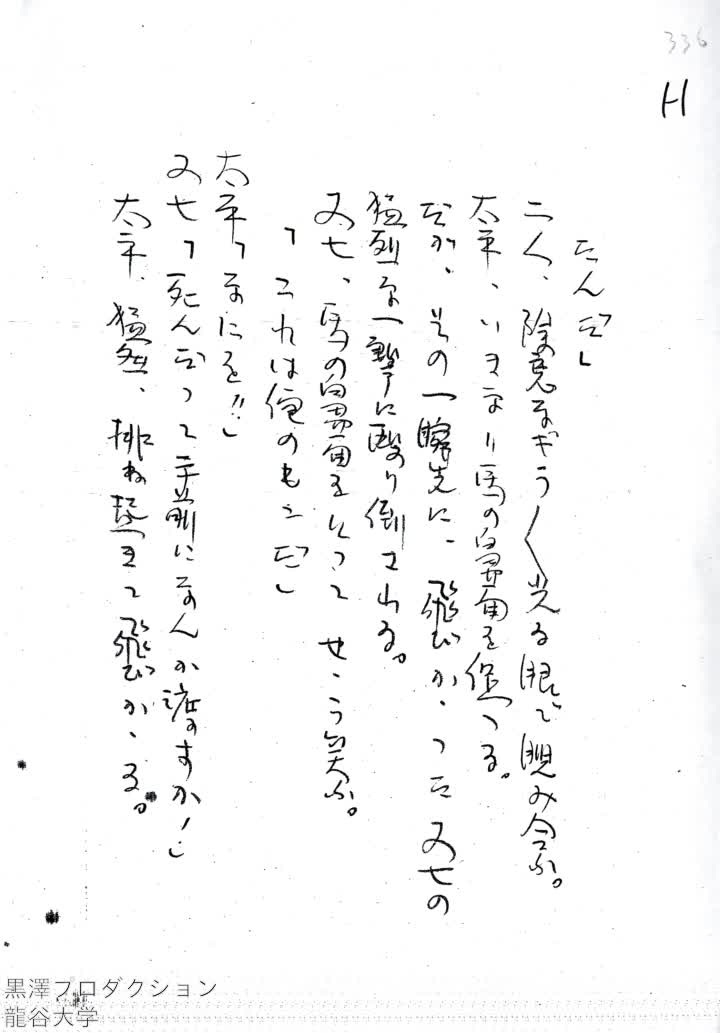 336
H
たんだ」
二人、険悪なギラ〱光る眼で睨み合ふ。
太平、いきなり馬の鼻面を捉へる。
だが、その一瞬先に、飛びかゝつた又七の
猛烈な一撃に殴り倒される。
又七、馬の鼻面をとつて せゝら笑ふ。
「これは俺のもんだ」
太平「なにを!!」
又七「死んだつて手前になんか渡すか!」
太平、猛然、撥ね起きて飛びかゝる。
黒澤プロダクション
龍谷大学